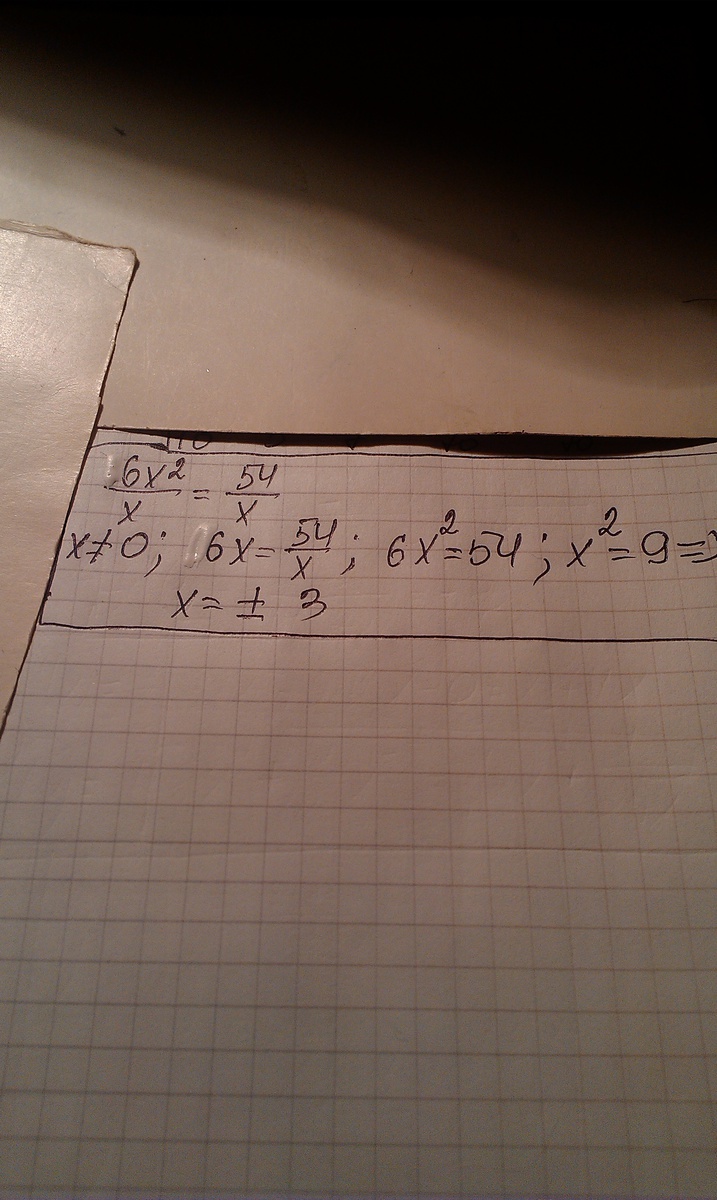 6x²/x = 54/x
x≠0; 6x = 54/x; 6x²=54; x²=9 =>
x = ± 3